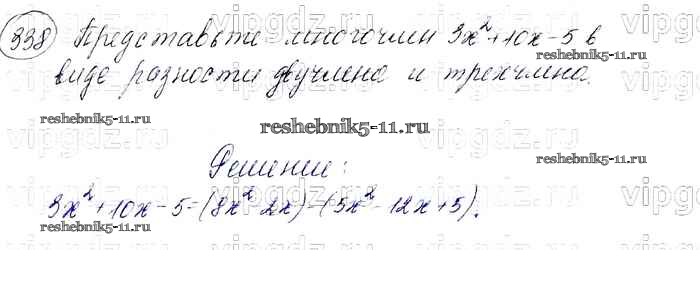 338 Представьте многочлен 3x²+10x-5 в
виде разности двучлена и трехчлена.
reshebnik5-11.ru
reshebnik5-11.ru
reshebnik5-11.ru
Решение:
3x²+10x-5=(8x²-2x)-(5x²-12x+5).
reshebnik5-11.ru
reshebnik5-11.ru
vipgdz.ru